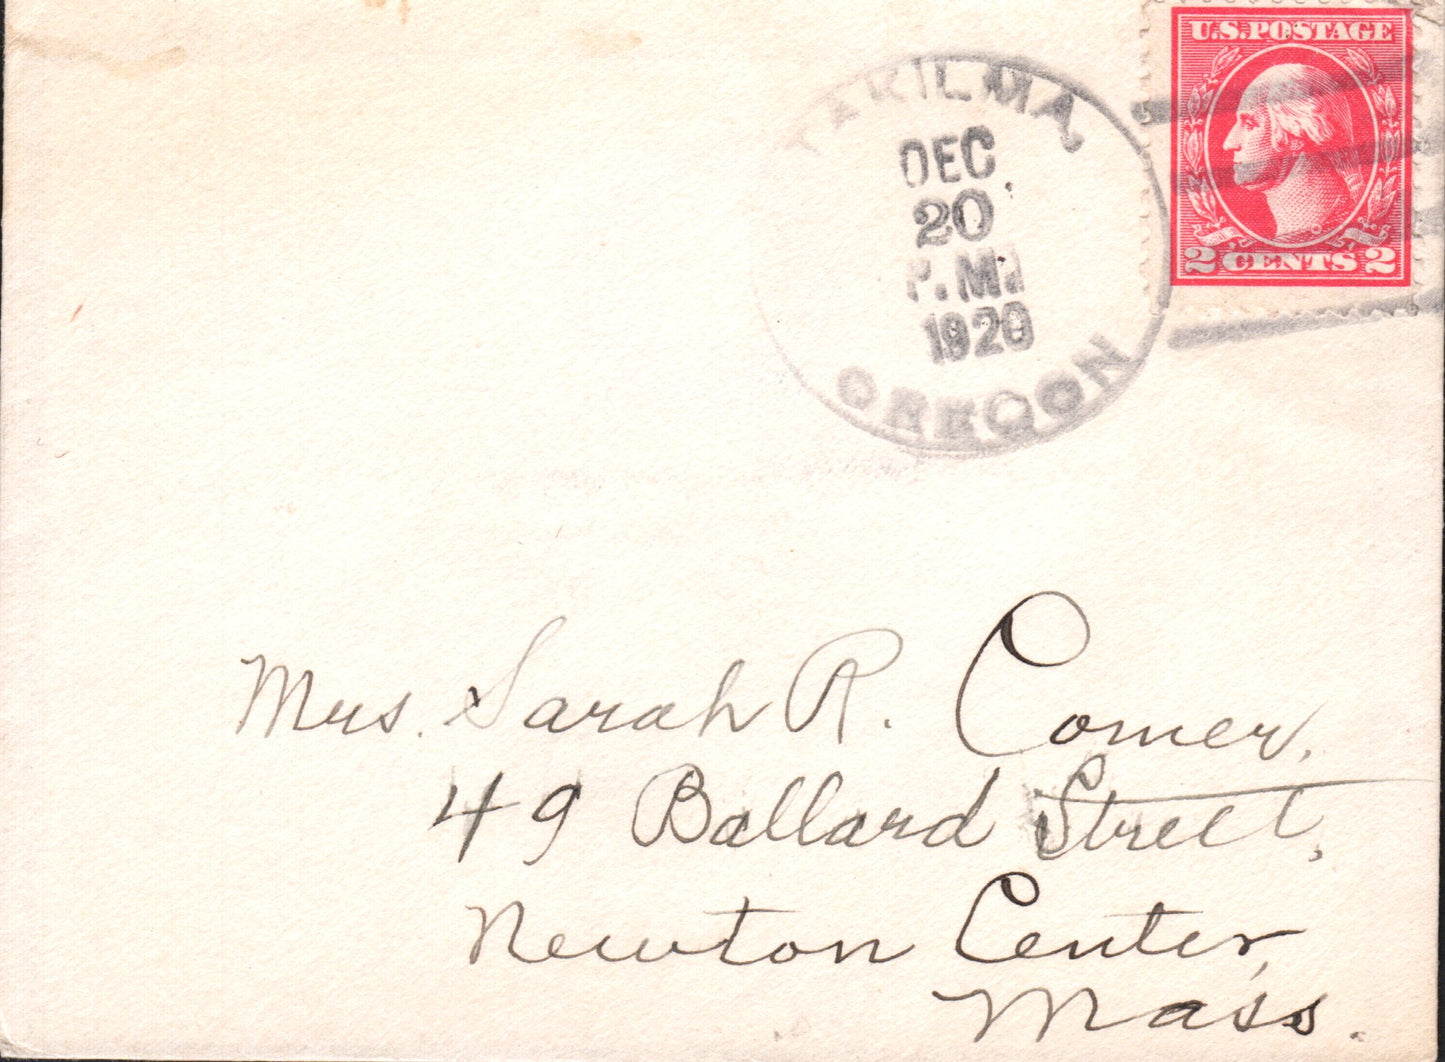 U.S. POSTAGE
2 CENTS 2
TAKILMA,
DEC
20
P.M.
1920
OREGON
Mrs. Sarah R. Comer,
49 Ballard Street,
Newton Center,
Mass.